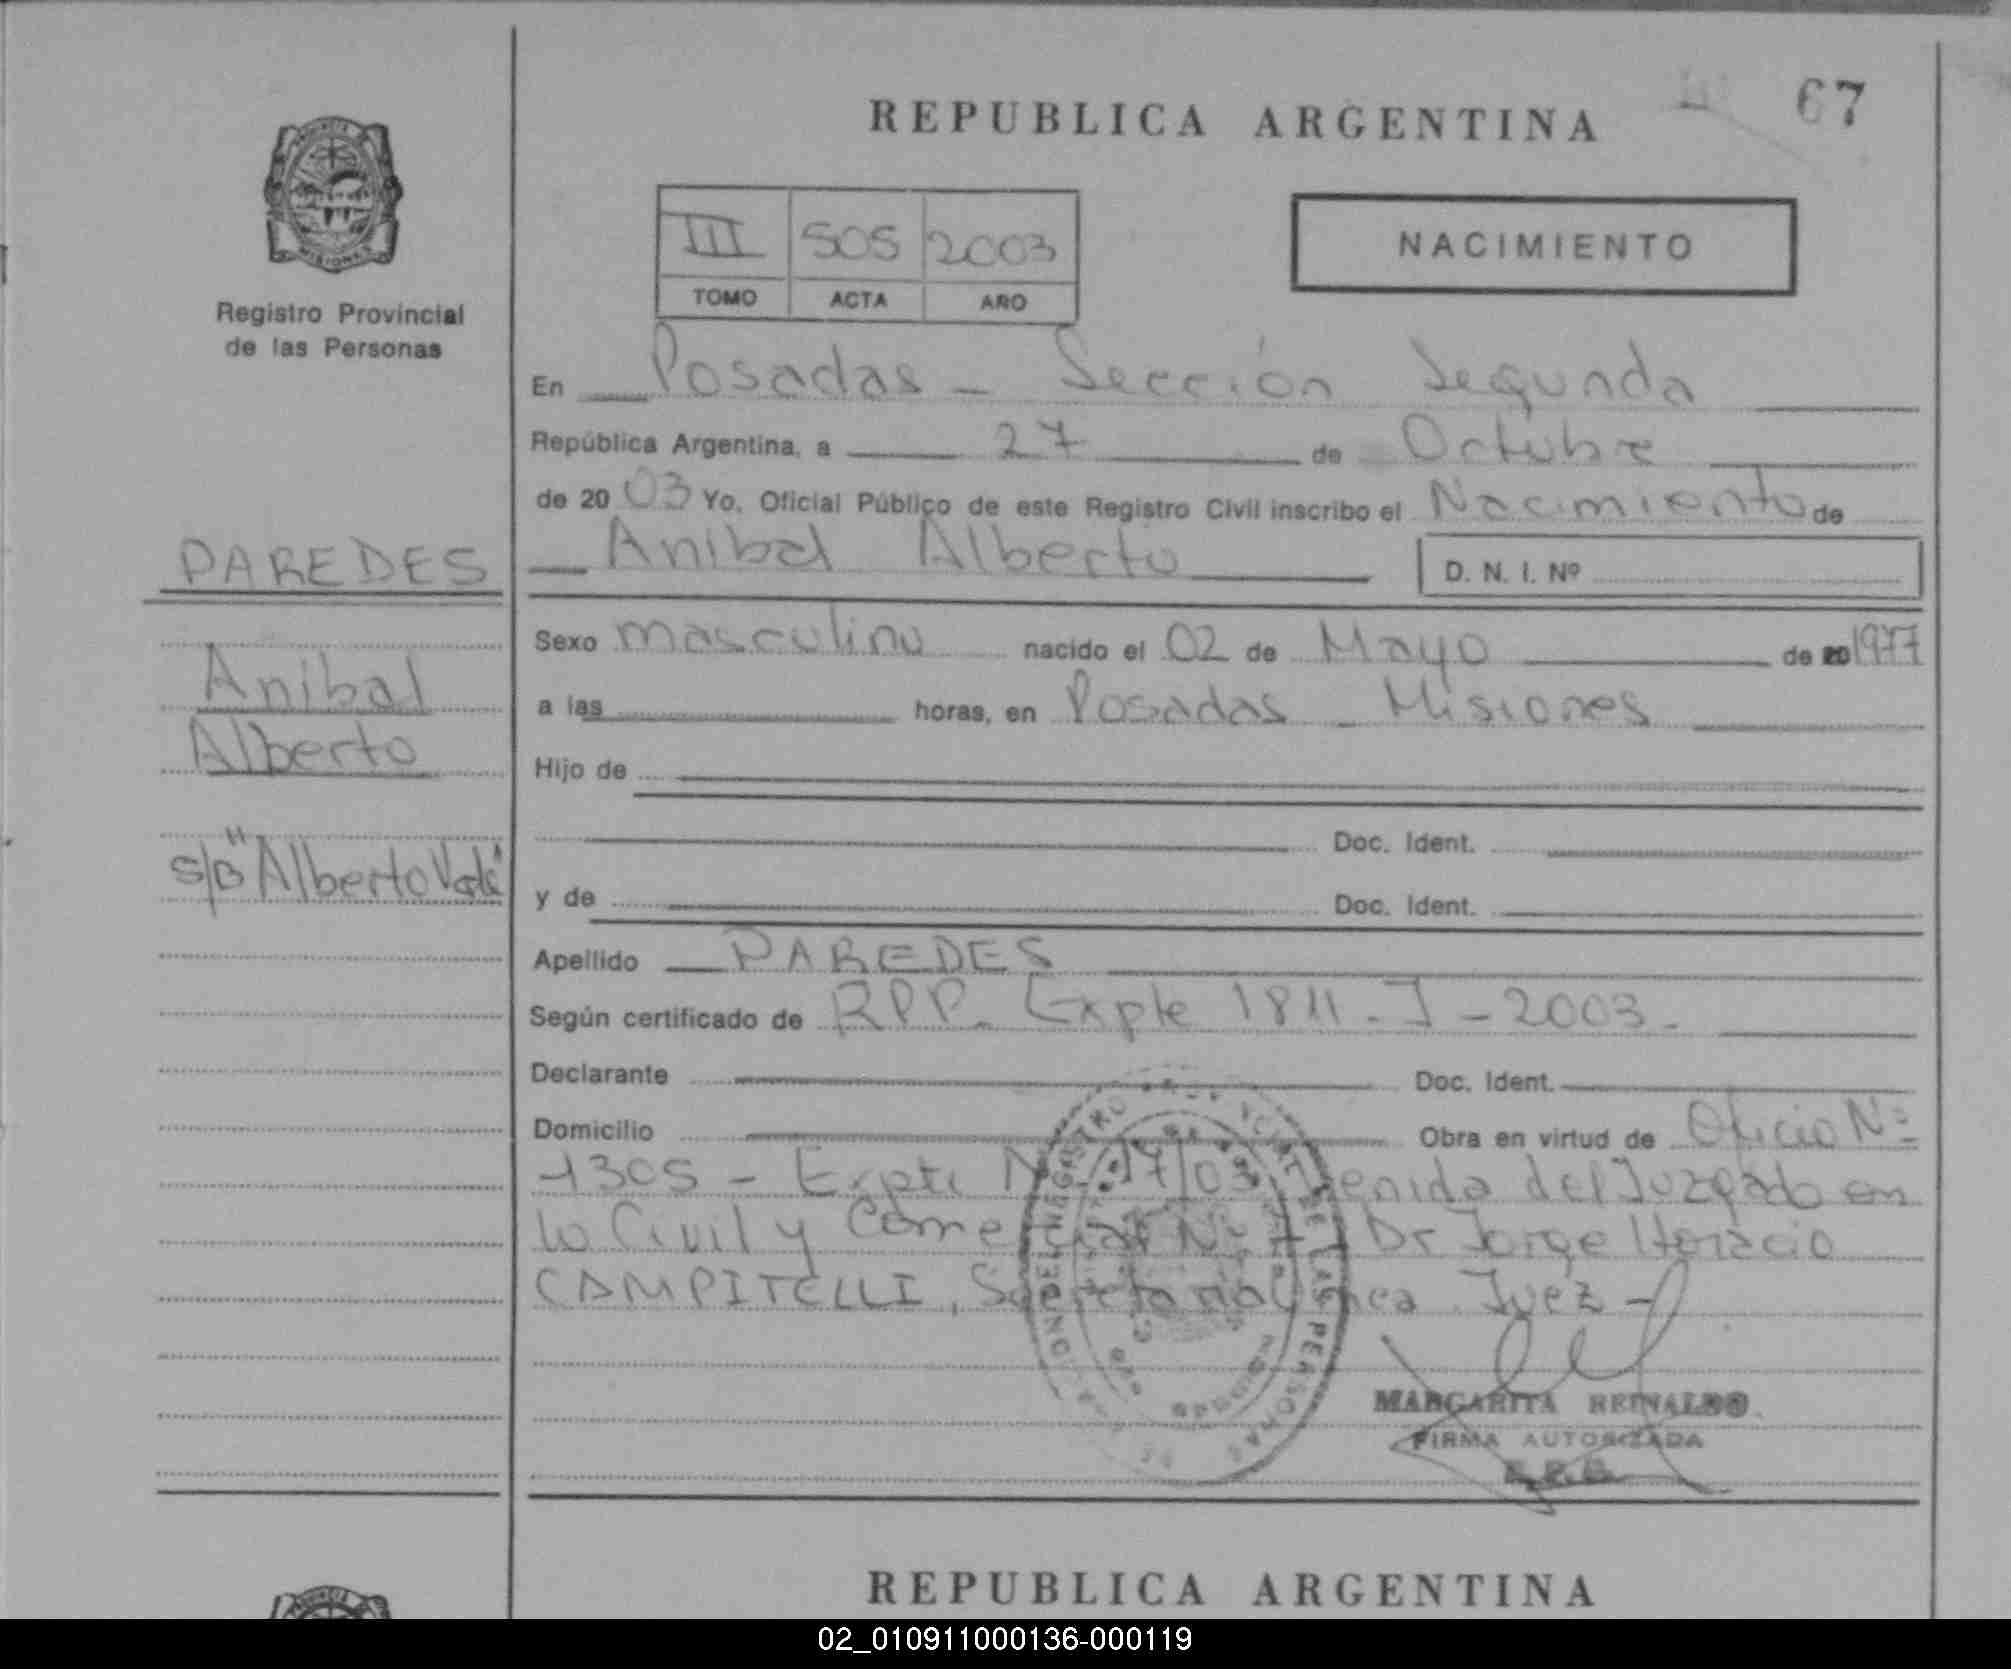 REPUBLICA ARGENTINA
67
PROVINCIA
MISIONES
Registro Provincial
de las Personas
III 505 2003
TOMO ACTA AÑO
NACIMIENTO
En Posadas - Sección Segunda
República Argentina, a 27 de Octubre
de 2003 Yo, Oficial Público de este Registro Civil inscribo el Nacimiento de
PAREDES
Anibal Alberto D. N. I. Nº
Sexo masculino nacido el 02 de Mayo de 20 1977
Anibal
a las horas, en Posadas - Misiones
Alberto
Hijo de
Doc. Ident.
S/B "Alberto
y de Doc. Ident.
Apellido PAREDES
Según certificado de RPP. Expte 1811-J-2003.
Declarante Doc. Ident.
Domicilio Obra en virtud de Oficio Nº
1305 - Expte Nº 17/03 del Juzgado en
lo Civil y Comercial Nº Dr Jorge Horacio
CAMPITELLI, Secretaria Unica Juez -
REGISTRO PROVINCIAL DE LAS PERSONAS
MARGARITA REINALDO
FIRMA AUTORIZADA
REPUBLICA ARGENTINA
02_010911000136-000119